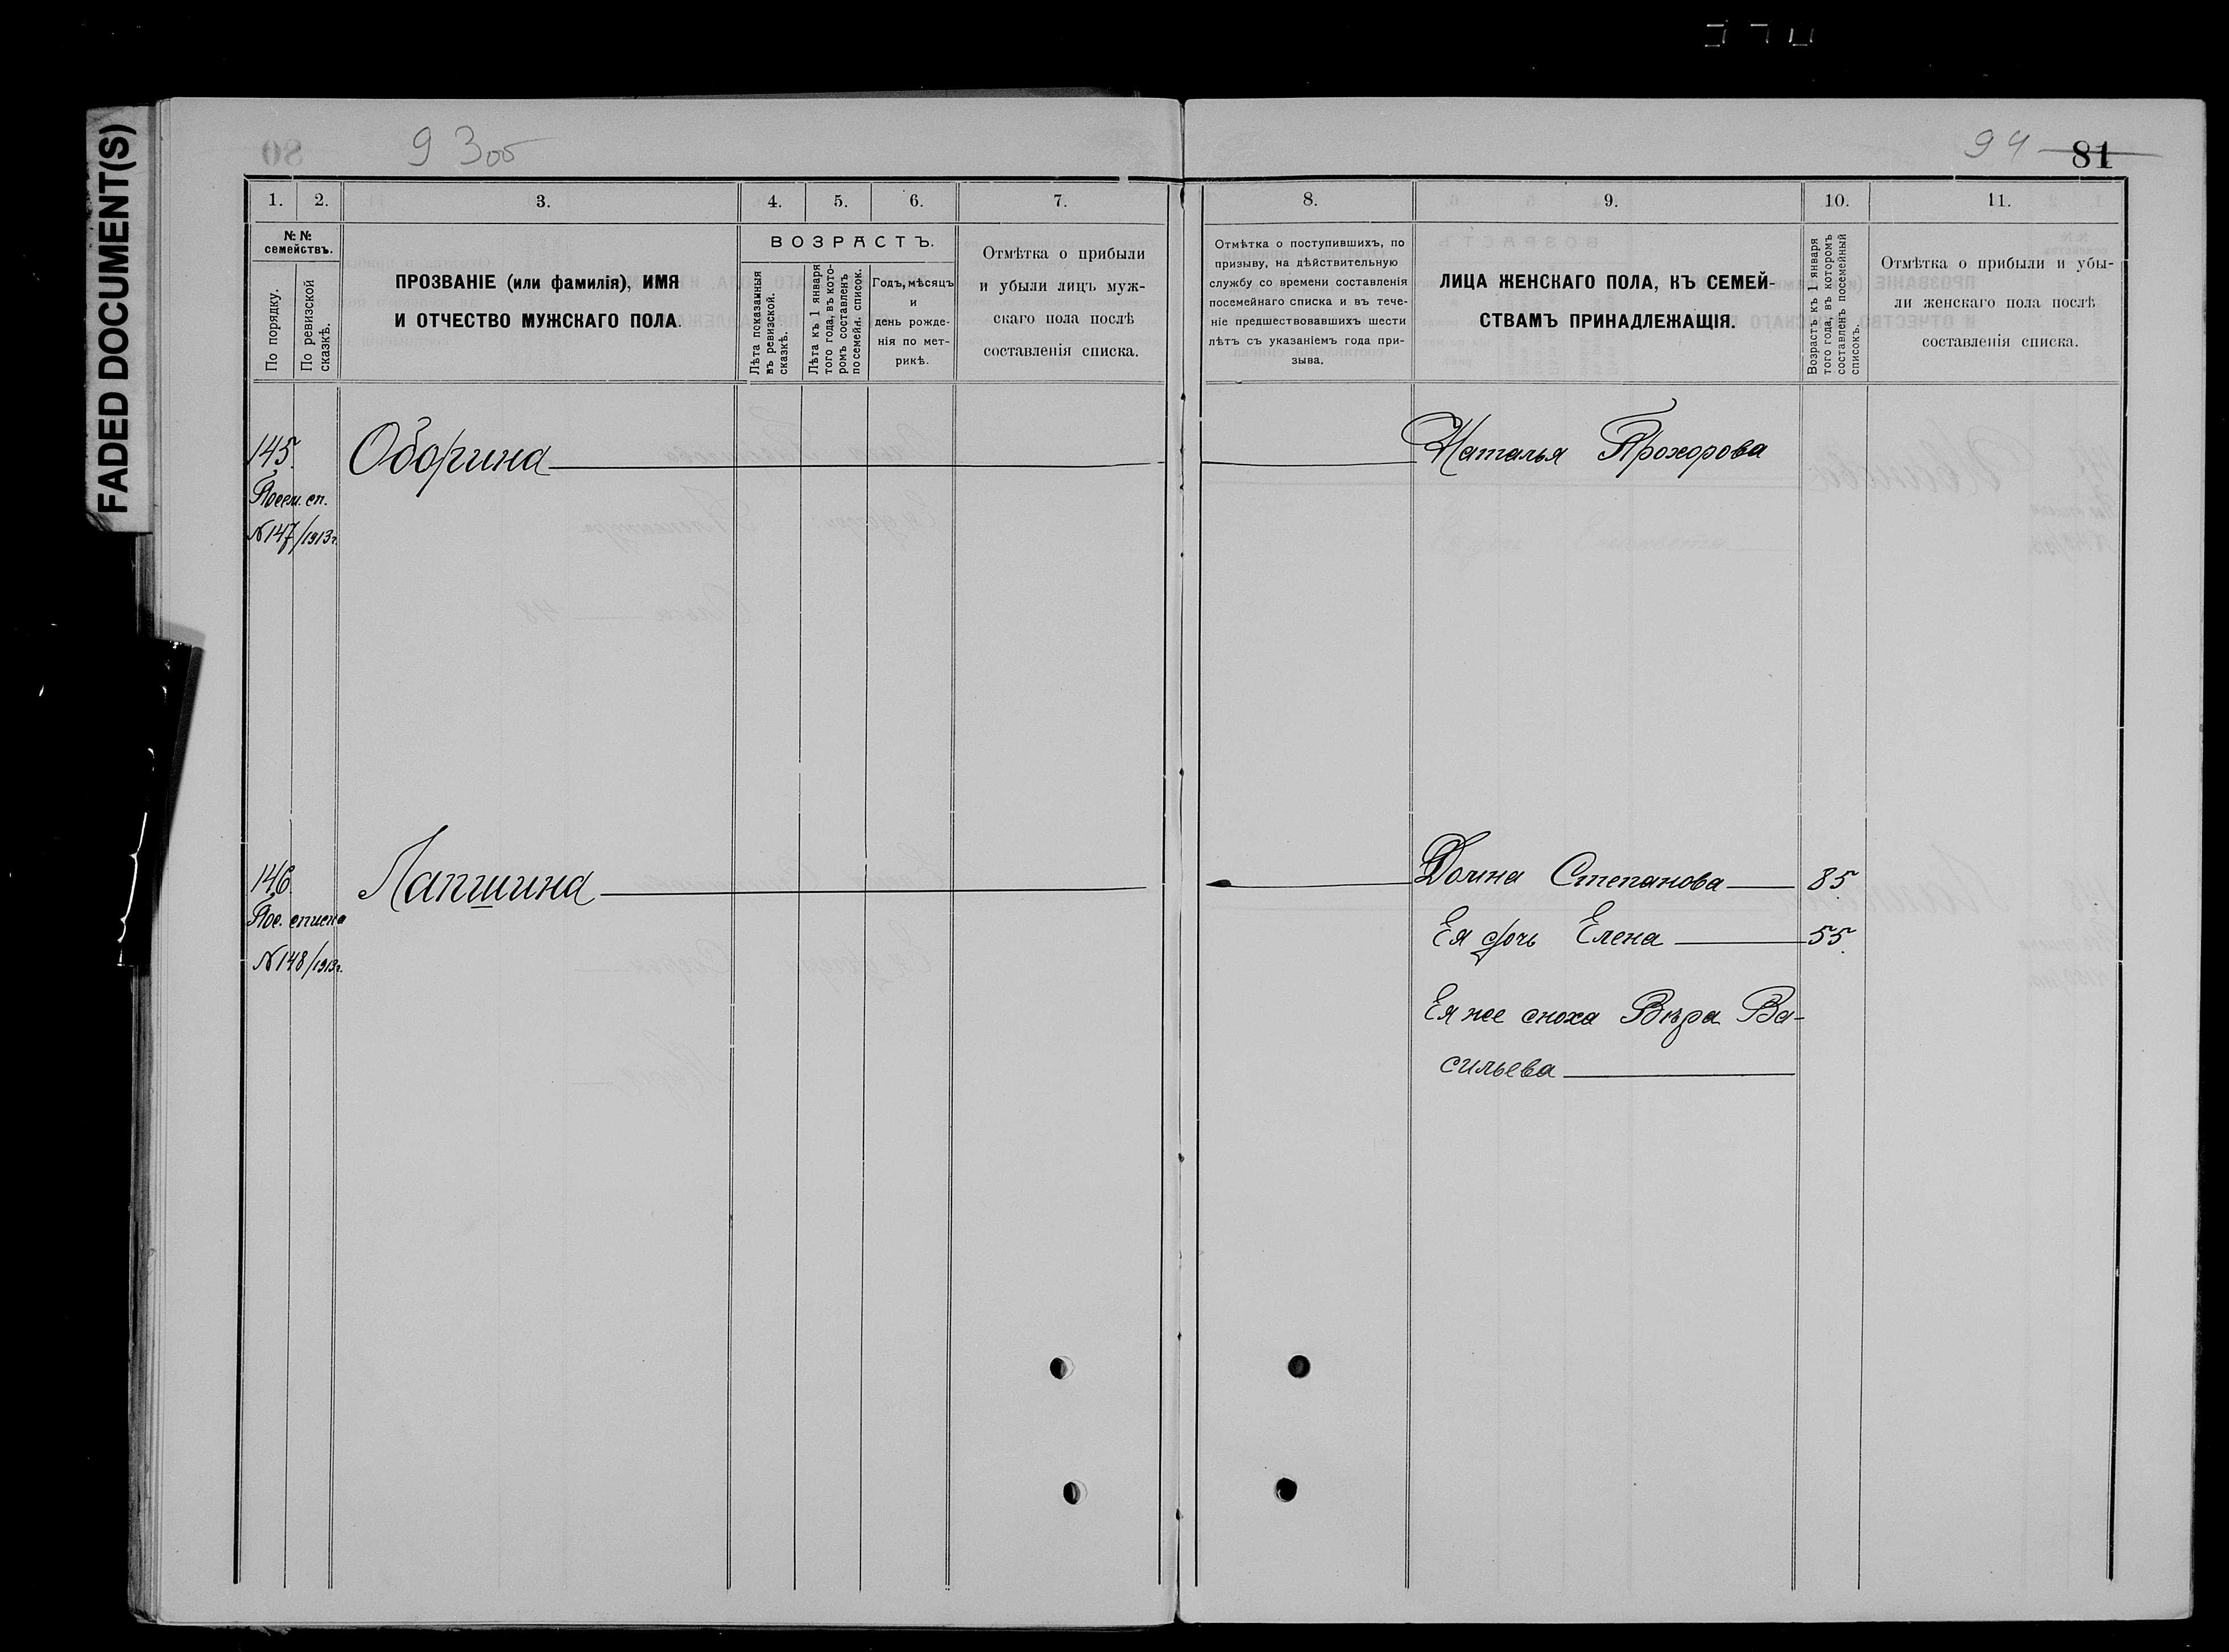 FADED DOCUMENT(S)
93об
94 81
1. 2. 3. 4. 5. 6. 7. 8. 9. 10. 11.
№ №
семействъ.
По порядку.
По ревизской
сказкѣ.
ПРОЗВАНІЕ (или фамилія), ИМЯ
И ОТЧЕСТВО МУЖСКАГО ПОЛА.
ВОЗРАСТЪ.
Лѣта показанныя
въ ревизской.
сказкѣ.
Лѣта къ 1 января
того года, въ кото-
ромъ составленъ
посемейн. список.
Годъ, мѣсяцъ
и
день рожде-
нія по мет-
рикѣ.
Отмѣтка о прибыли
и убыли лицъ муж-
скаго пола послѣ
составленія списка.
Отмѣтка о поступившихъ, по
призыву, на дѣйствительную
службу со времени составленія
посемейнаго списка и въ тече-
ніе предшествовавшихъ шести
лѣтъ съ указаніемъ года при-
зыва.
ЛИЦА ЖЕНСКАГО ПОЛА, КЪ СЕМЕЙ-
СТВАМЪ ПРИНАДЛЕЖАЩІЯ.
Возрастъ къ 1 января
того года, въ которомъ
составленъ посемейный
списокъ.
Отмѣтка о прибыли и убы-
ли женскаго пола послѣ
составленія списка.
145. Оборина Наталья Прохорова
Посем. сп.
№ 147/1913г.
146 Лапшина Домна Степанова 85
Пос. списка
Ея дочь Елена 55.
№ 148/1913г.
Ея же сноха Вѣра Ва-
сильева